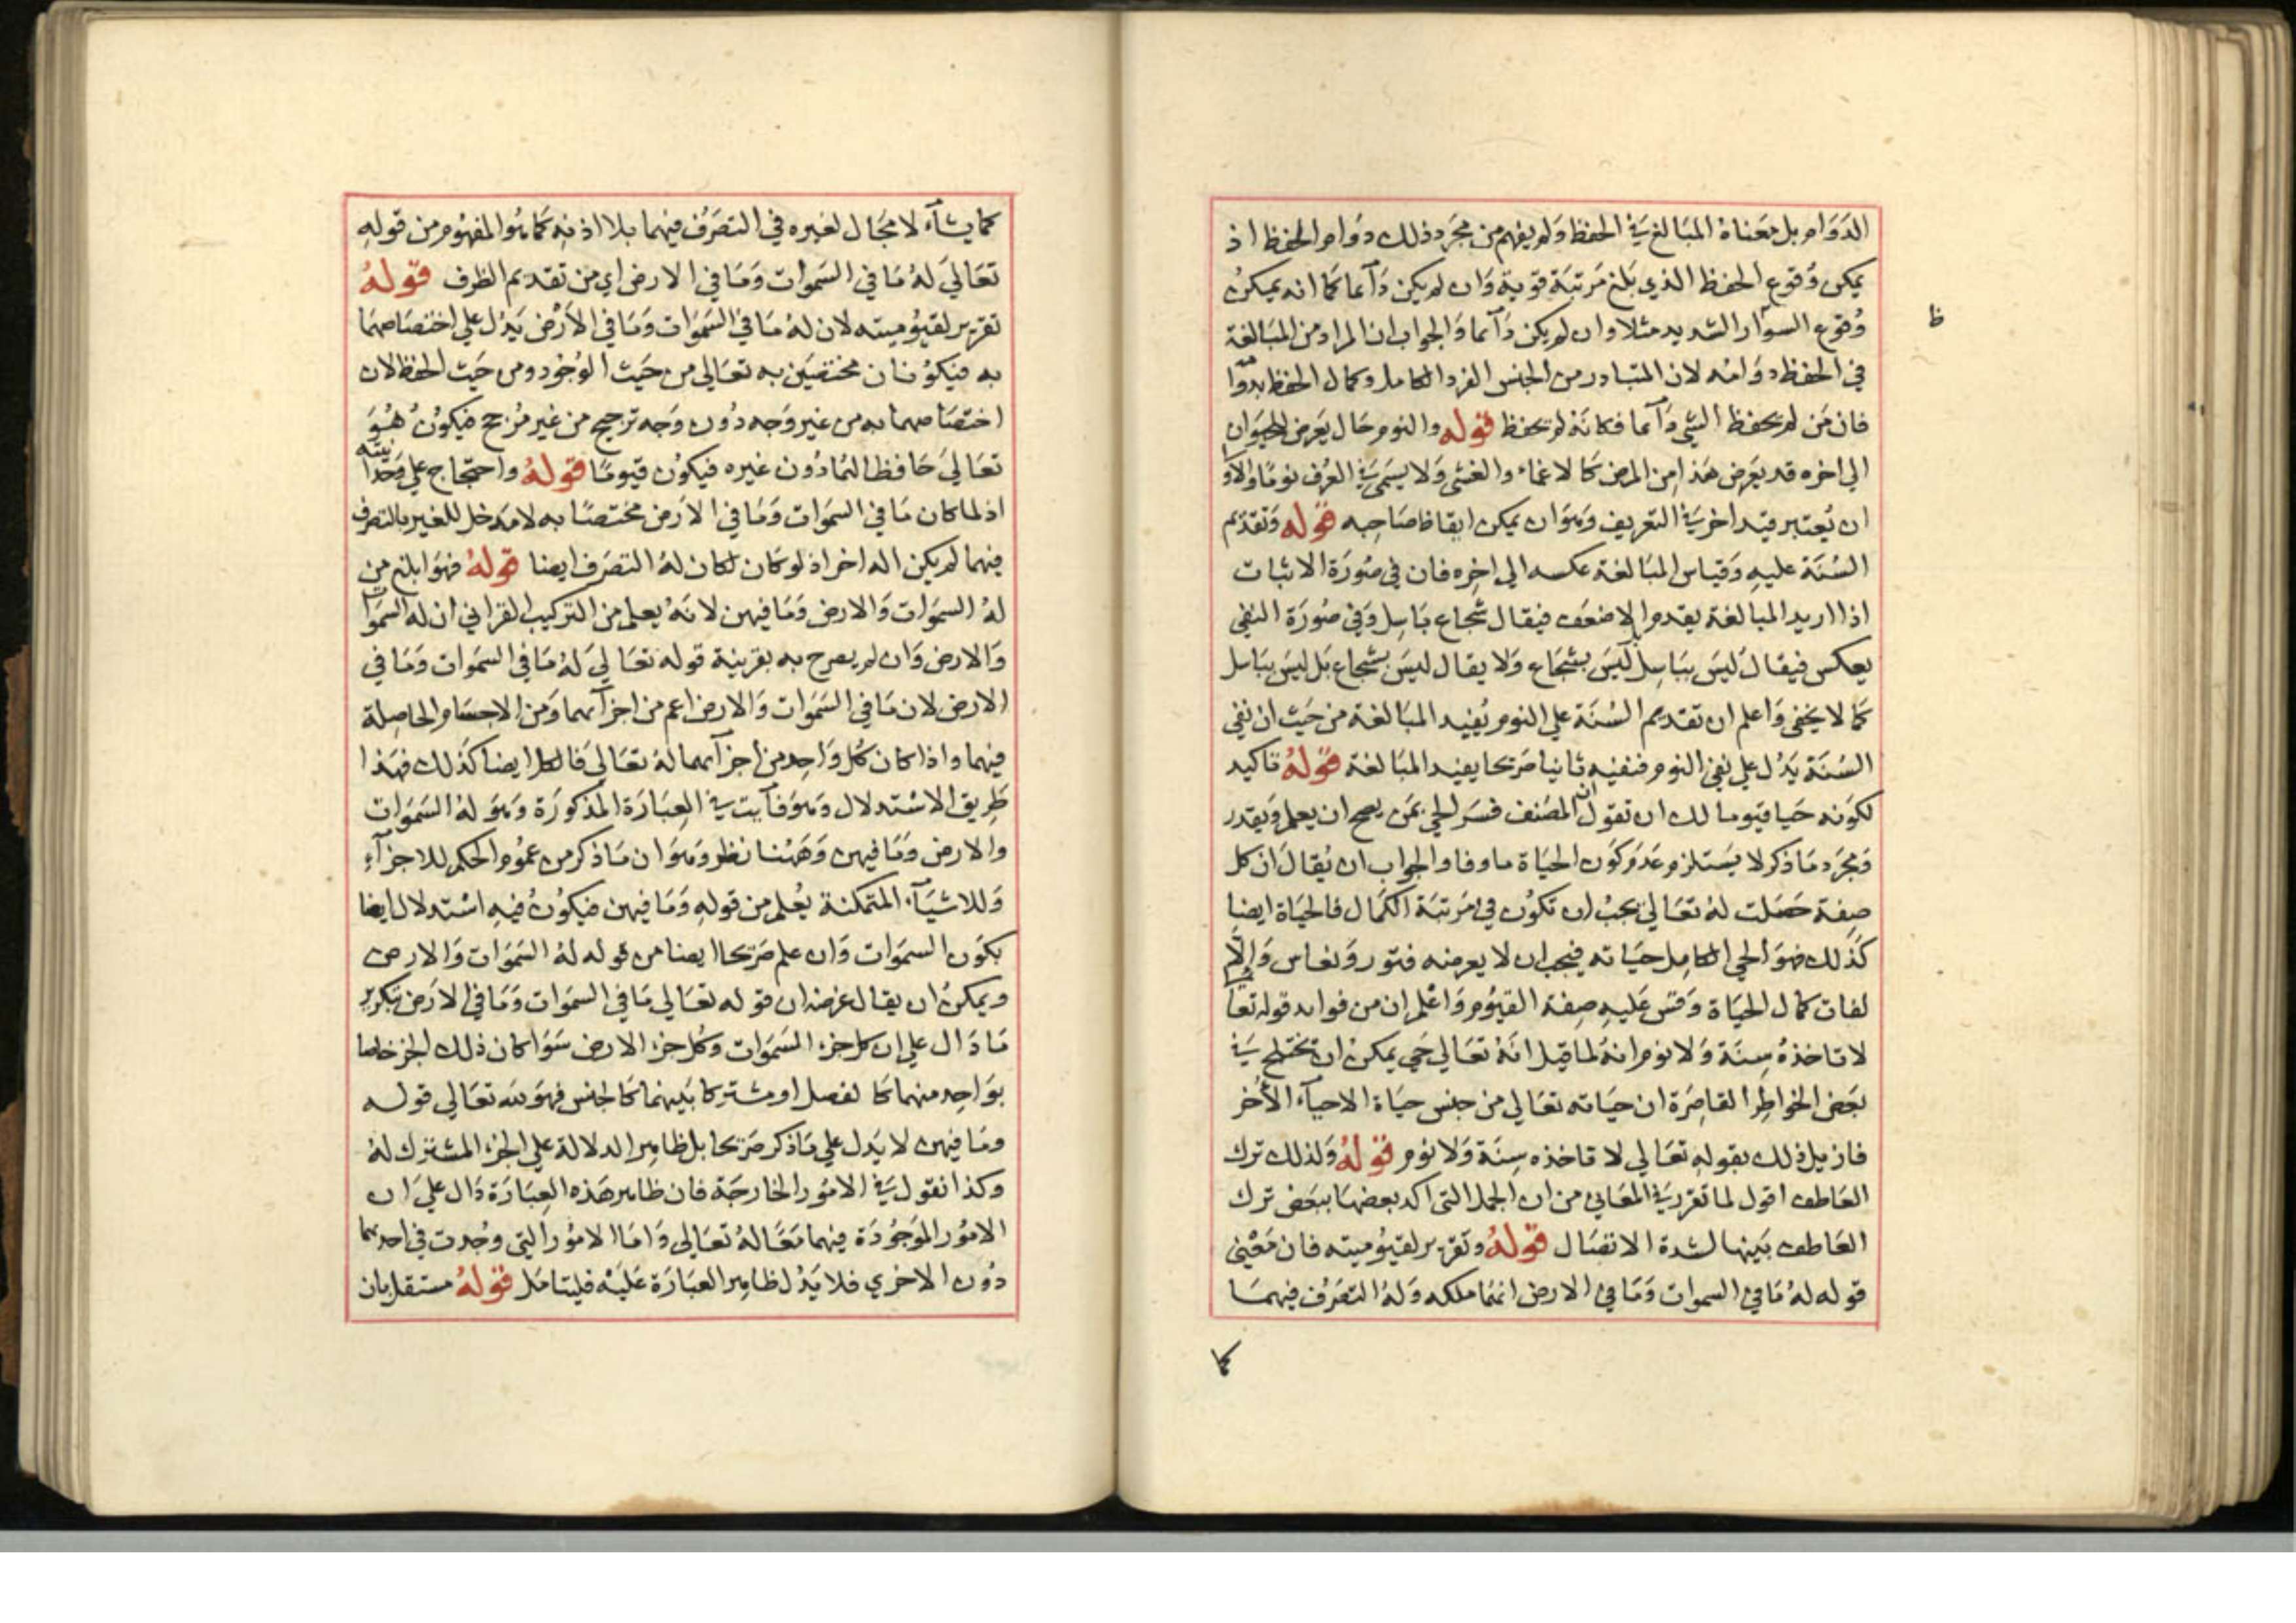 الدوام بل معناه المبالغة في الحفظ ولم يفهم من مجرد ذلك دوام الحفظ اذ
يمكن وقوع الحفظ الذي بلغ مرتبة قوية وان لم يكن دآئما كما انه يمكن
وقوع السواد الشديد مثلا وان لم يكن دآئما والجواب ان المراد من المبالغة
في الحفظ دوامه لان المتبادر من الجنس الفرد الكامل وكمال الحفظ بدوا مه
فان من لم يحفظ الشي دآئما فكانه لم يحفظ قوله والنوم حال يعرض للحيوان
الي اخره قد يعرض هذا من المرض كالاغماء والغشي ولا يسمي في العرف نوما والاو لي
ان يعتبر قيد اخر في التعريف وهو ان يمكن ايقاظ صاحبه قوله وتقديم
السنة عليه وقياس المبالغة عكسه الي اخره فان في صورة الاثبات
اذا اريد المبالغة يقدم الاضعف فيقال شجاع باسل وفي صورة النفي
يعكس فيقال ليس بباسل ليس بشجاع ولا يقال ليس بشجاع بل ليس بباسل
كما لا يخفي واعلم ان تقديم السنة علي النوم يفيد المبالغة من حيث ان نفي
السنة يدل علي نفي النوم فنفيه ثانيا صريحا يفيد المبالغة قوله تاكيد
لكونه حيا قيوما لك ان تقول ان المصنف فسر الحي بمن يصح ان يعلم ويقدر
ومجرد ما ذكر لا يستلزم عدم كون الحياة ماوفا والجواب ان يقال ان كل
صفة حصلت له تعالي يجب ان تكون في مرتبة الكمال فالحياة ايضا
كذلك فهو الحي الكامل حياته فيجب ان لا يعرضه فتور ونعاس والا
لفات كمال الحياة وقس عليه صفة القيوم واعلم ان من فوايد قوله تعا لي
لا تاخذه سنة ولا نوم انه لما قيل انه تعالي حي يمكن ان يختلج في
بعض الخواطر القاصرة ان حياته تعالي من جنس حياة الاحيآء الاخر
فازيل ذلك بقوله تعالي لا تاخذه سنة ولا نوم قوله ولذلك ترك
العاطف اقول لما تقرر في المعاني من ان الجمل التي اكد بعضها ببعض ترك
العاطف بينها لشدة الاتصال قوله وتقرير لقيوميته فان معني
قوله له ما في السموات وما في الارض انهما ملكه وله التصرف فيهما
كما
ظ
كما يشآء لا مجال لغيره في التصرف فيهما بلا اذنه كما هو المفهوم من قوله
تعالي له ما في السموات وما في الارض اي من تقديم الظرف قوله
تقرير لقيوميته لان له ما في السموات وما في الارض يدل علي اختصاصهما
به فيكونان مختصين به تعالي من حيث الوجود ومن حيث الحفظ لان
اختصاصهما به من غير وجه دون وجه ترجيح من غير مرجح فيكون هو
تعالي حافظا لهما دون غيره فيكون قيوما قوله واحتجاج علي وحدا نيته
اذ لما كان ما في السموات وما في الارض مختصا به لا مدخل للغير بالتصرف
فيهما لم يكن اله اخر اذ لو كان لكان له التصرف ايضا قوله فهو ابلغ من
له السموات والارض وما فيهن لانه يعلم من التركيب القراني ان له السموا ت
والارض وان لم يصرح به بقرينة قوله تعالي له ما في السموات وما في
الارض لان ما في السموات والارض اعم من اجزآئهما ومن الاجسام الحاصلة
فيهما واذا كان كل واحد من اجزآئهما له تعالي فالكل ايضا كذلك فهذا
طريق الاستدلال وهو فآيت في العبارة المذكورة وهو له السموات
والارض وما فيهن وههنا نظر وهو ان ما ذكر من عموم الحكم للاجزآء
وللاشيآء المتمكنة يعلم من قوله وما فيهن فيكون فيه استدلال ايضا
بكون السموات وان علم صريحا ايضا من قوله له السموات والارض
ويمكن ان يقال غرضه ان قوله تعالي ما في السموات وما في الارض بتكرير
ما دال علي ان كل جزء السموات وكل جزء الارض سوا كان ذلك الجزء خاصا
بواحد منهما كالفصل او مشتركا بينهما كالجنس فهو لله تعالي قوله
وما فيهن لا يدل علي ما ذكر صريحا بل ظاهر الدلالة علي الجزء المشترك له
وكذا نقول في الامور الخارجة فان ظاهر هذه العبارة دال علي ان
الامور الموجودة فيهما معا له تعالي واما الامور التي وجدت في احدهما
دون الاخري فلا يدل ظاهر العبارة عليه فليتامل قوله مستقل بان